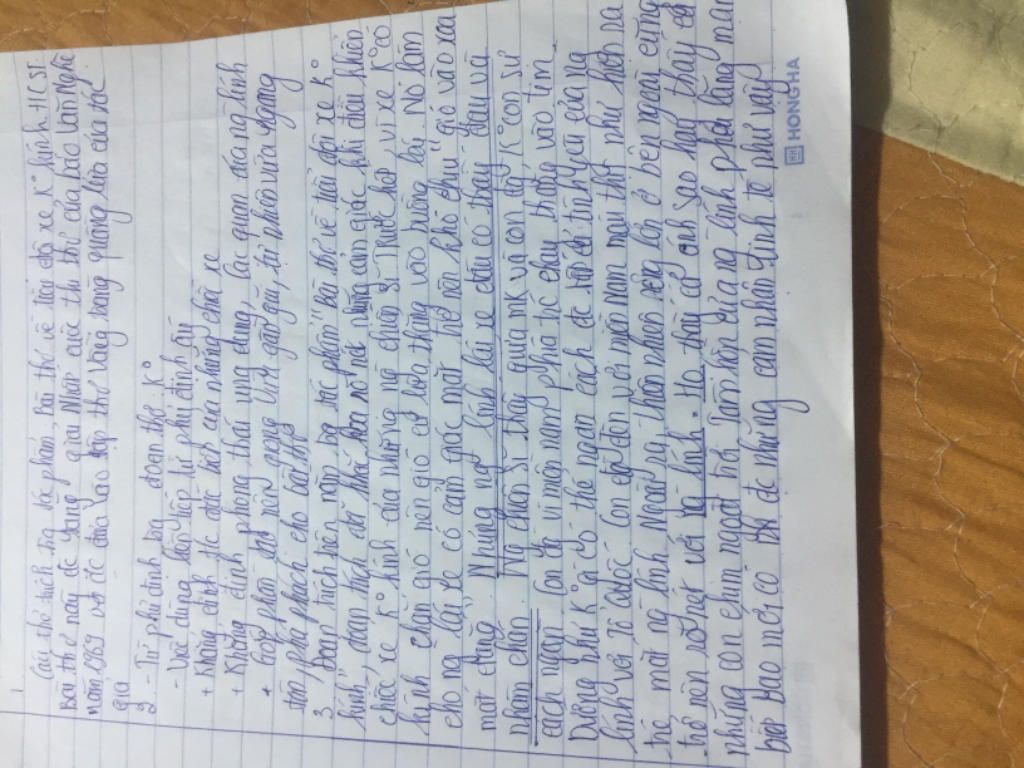 1.
Câu thơ trích trg tác phẩm "Bài thơ về tiểu đội xe K° kính - HCST
Bài thơ này đc giải Nhất cuộc thi thơ của báo Văn Nghệ
năm 1969 và đc đưa vào tập thơ Vầng trăng quầng lửa của tác
giả
2. - Từ phủ định trg đoạn thơ: K°
- Việc dùng liên tiếp từ phủ định ấy
+ Khẳng định sự độc đáo của những chiếc xe
+ Khẳng định phong thái ung dung, lạc quan của ng lính
+ Góp phần tạo nên giọng vừa gần gũi, tự nhiên vừa ngang
tàng, phá phách cho bài thơ
3. Đoạn trích trên nằm trg tác phẩm "Bài thơ về tiểu đội xe K°
kính", đoạn trích đã khắc họa rõ nét những cảm giác khi điều khiển
chiếc xe K° kính của những nó chiến sĩ. Trước hết, vì xe K° có
kính chắn gió nên gió cứ lùa thẳng vào buồng lái. Nó làm
cho ng lái xe có cảm giác mắt trở nên khó chịu "gió vào xoa
mắt đắng". Những ng lính lái xe đâu có thấy đau và
nhăn nhăn Ng chiến sĩ thấy qua mk và con này, K° còn sự
cách ngăn "con đg vì miền nam phía trc chạy thẳng vào tim"
Dường như K° gì có thể ngăn cách đc tình yêu của ng
lính với tổ quốc. Con đg dẫn với miền Nam máu thịt phía hơn na
trẻ mãi ng lính. Ngoài ra, thiên nhiên rộng lớn ở bên ngoài cũng
trở nên rõ nét với ng lính. Họ thấy cả ánh sao hay thấy cả
những con chim ngoài trời Tâm hồn của ng lính phải lãng mạn
biết bao mới có thể đc những cảm nhận tinh tế như vậy
HONG HA